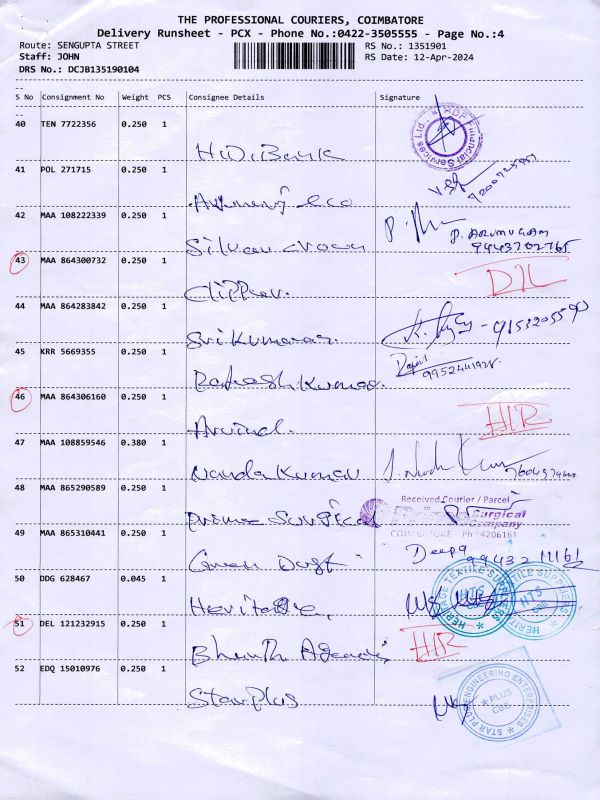 THE PROFESSIONAL COURIERS, COIMBATORE
Delivery Runsheet - PCX - Phone No.:0422-3505555 - Page No.:4
Route: SENGUPTA STREET RS No.: 1351901
Staff: JOHN RS Date: 12-Apr-2024
DRS No.: DCJB135190104
S No Consignment No Weight PCS Consignee Details Signature
40 TEN 7722356 0.250 1
HDF Financial Services Ltd.,
41 POL 271715 0.250 1
42 MAA 108222339 0.250 1
Silver crown P. ARUMUGAM
9443702765
43 MAA 864300732 0.250 1
Clipper. DIL
44 MAA 864283842 0.250 1
Sri Kumaran 9153205590
45 KRR 5669355 0.250 1
Rakesh Kumar
46 MAA 864306160 0.250 1
Arvind. HR
47 MAA 108859546 0.380 1
Nanda Kumar
48 MAA 865290589 0.250 1 Received Courier / Parcel
Prime Surgical Surgical
Company
49 MAA 865310441 0.250 1 COIMBATORE Ph : 4206161
Green Dust Deepa 99432 11161
50 DDG 628467 0.045 1
Heritage, HERITAGE TEXTILE SUPPLIERS HTS CBE
51 DEL 121232915 0.250 1 HR
Agencies
52 EDQ 15010976 0.250 1
Star Plus STAR PLUS ENGINEERING ENTERPRISES PLUS CBE